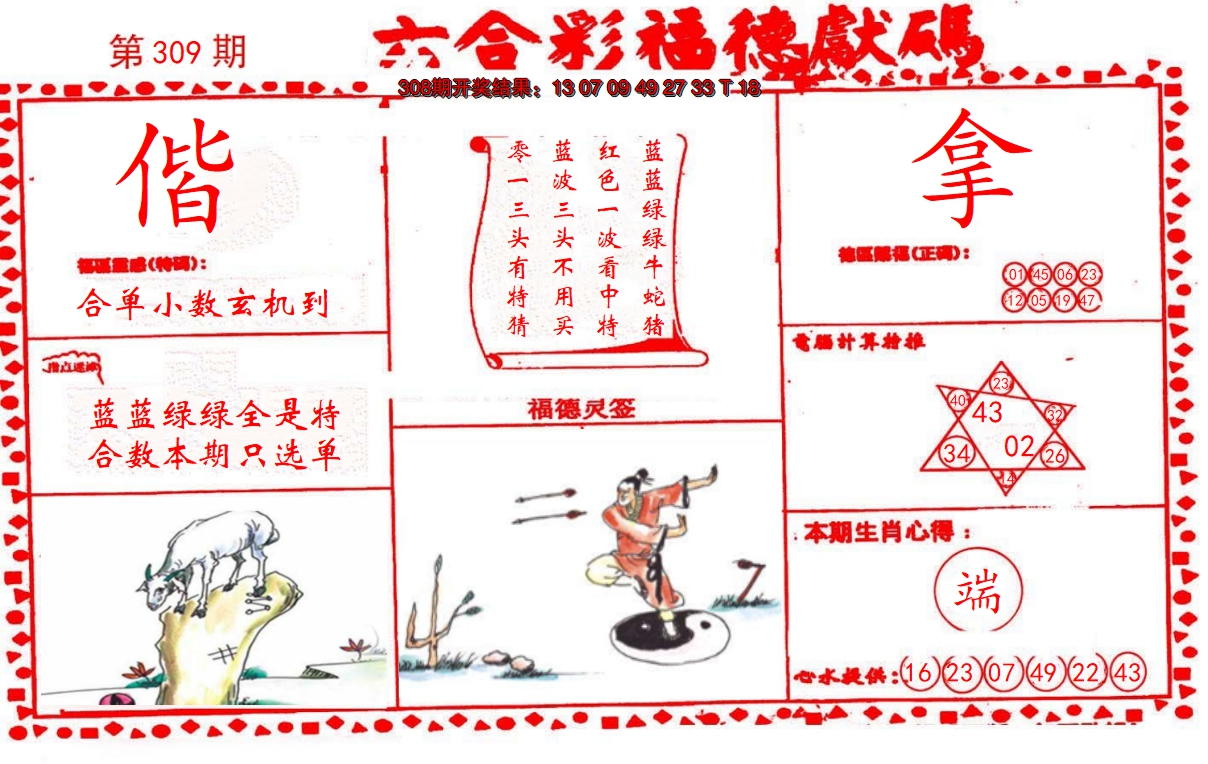 第 309 期
六合彩福德獻碼
308期开奖结果：13 07 09 49 27 33 T 18
偕
合单小数玄机到
蓝蓝绿绿全是特
合数本期只选单
蓝蓝绿绿牛蛇猪
红色一波看中特
蓝波三头不用买
零一三头有特猜
福德灵签
拿
01 45 06 23
12 05 19 47
電腦计算
23
40 43 32
34 02 26
14
本期生肖心得：
端
心水提供：16 23 07 49 22 43